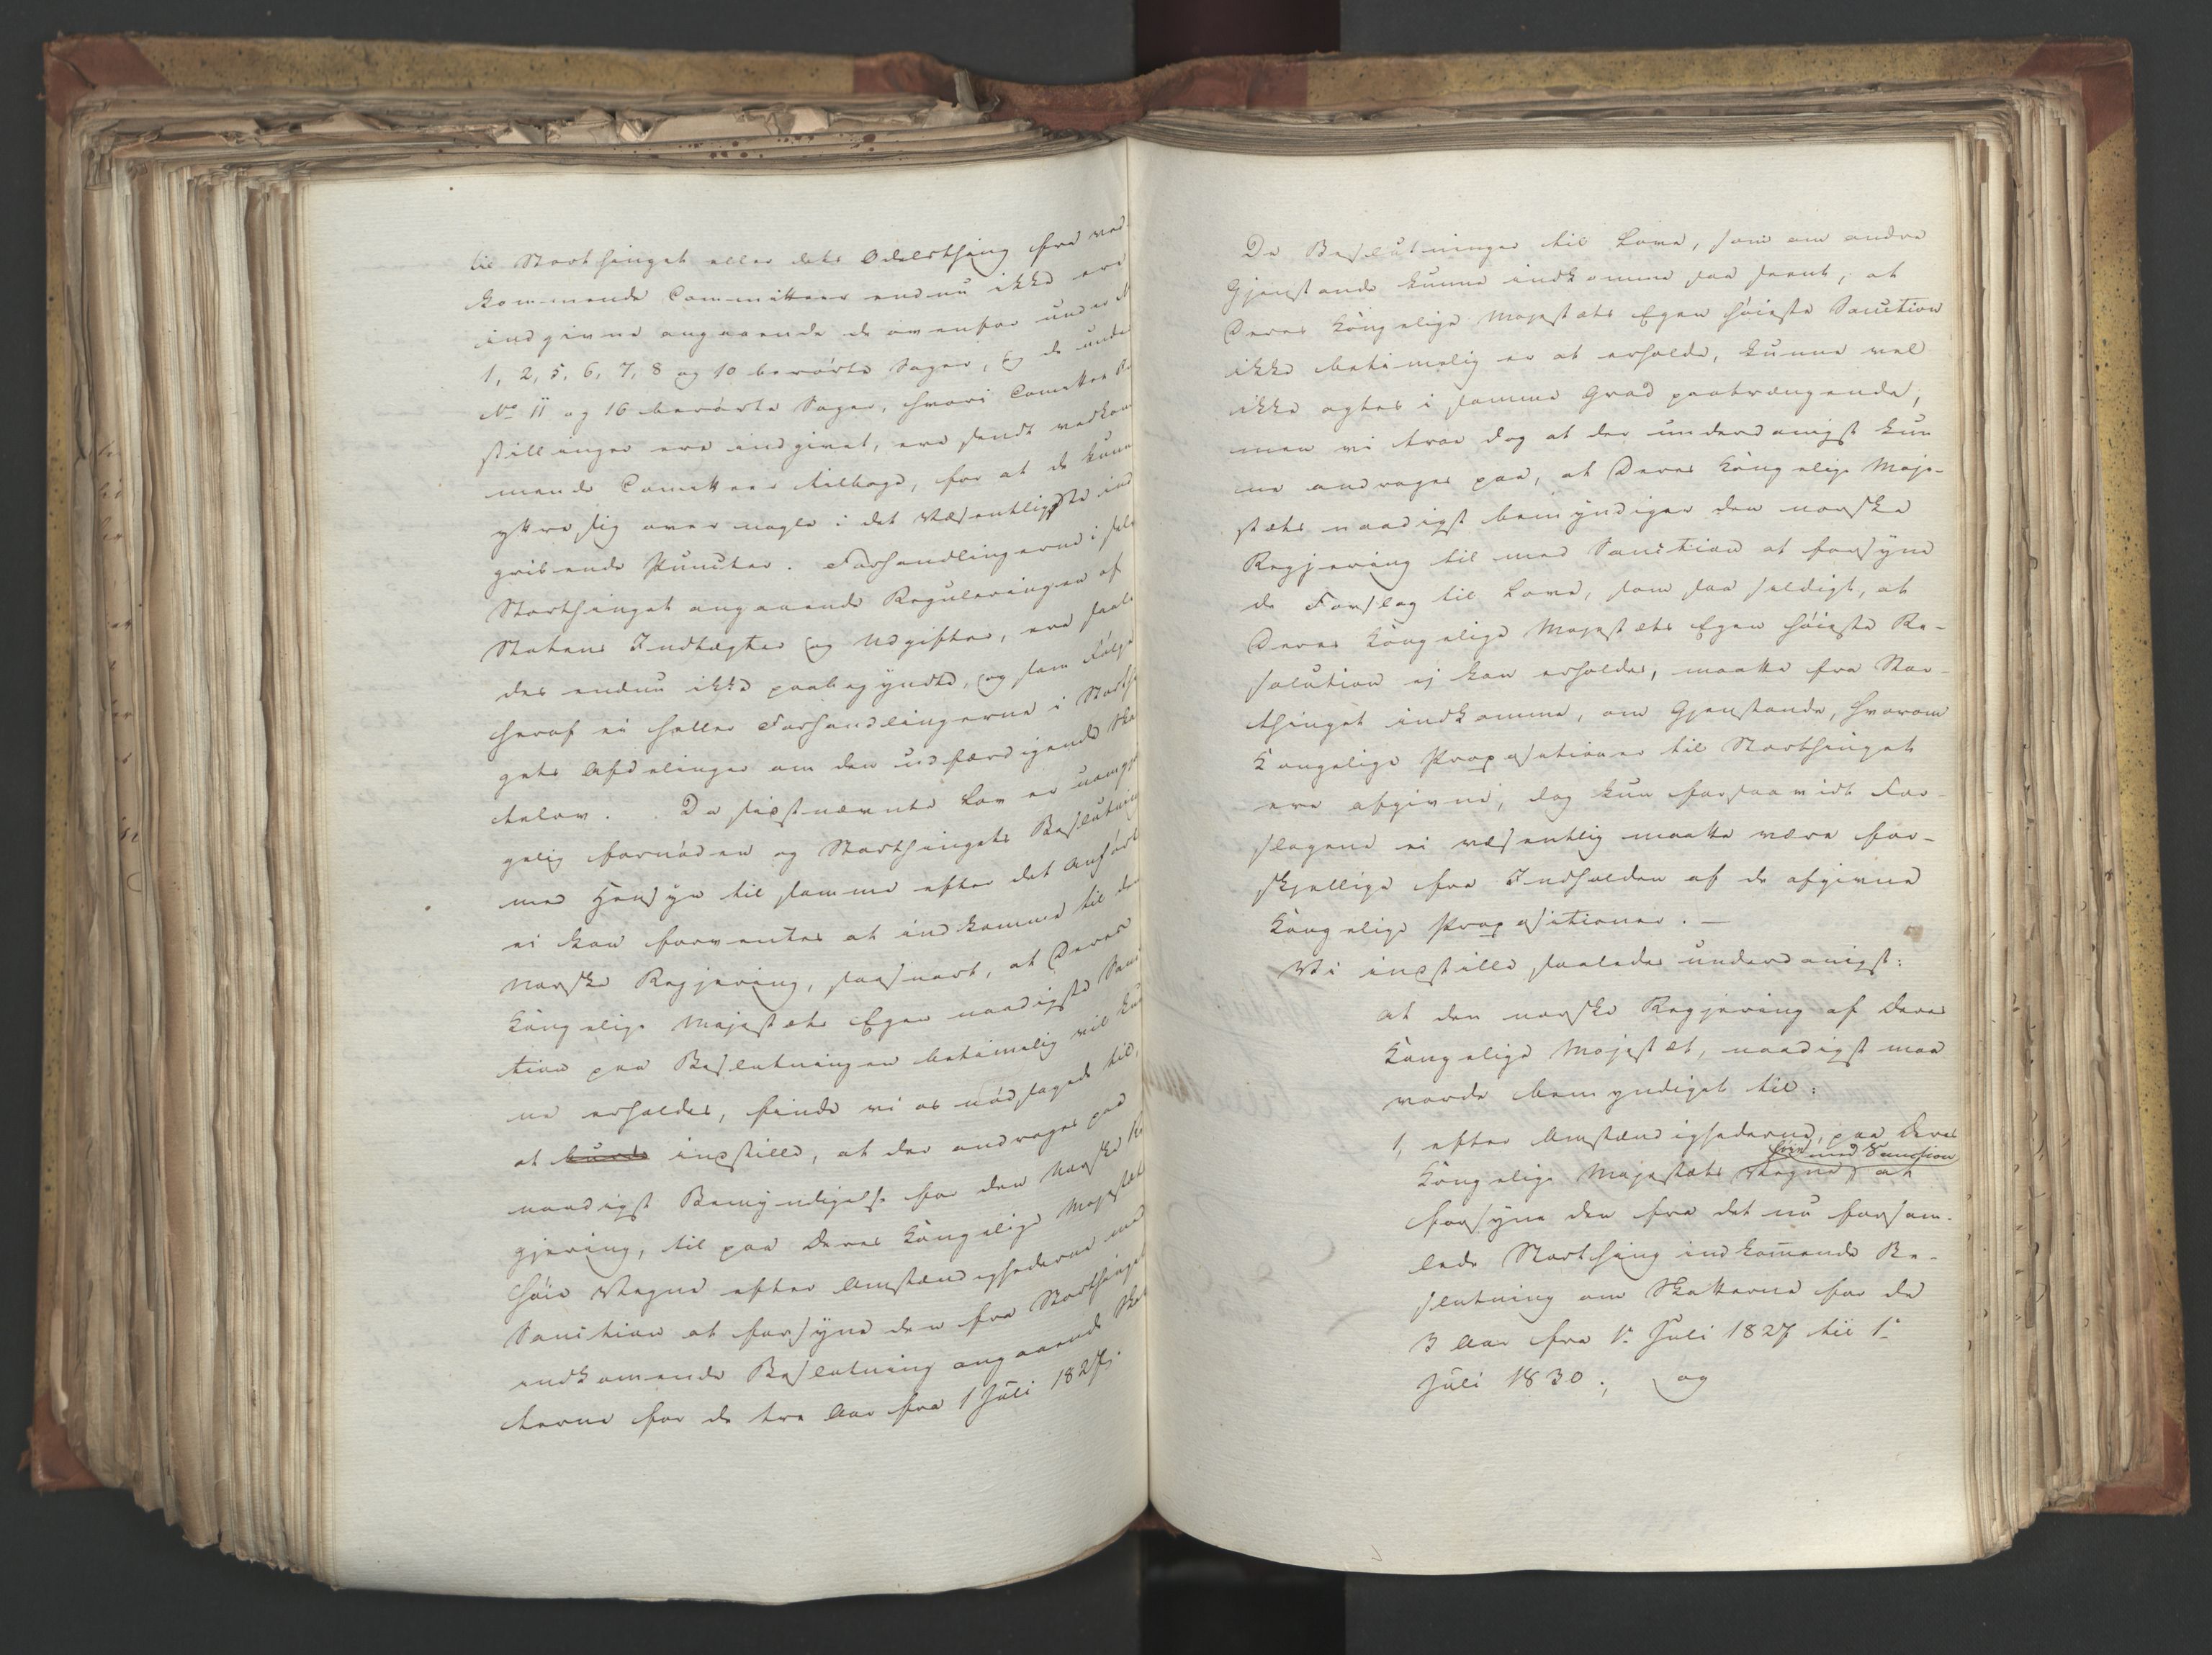 til Storthinget eller dets Odelsthing fra ved-
kommende Committeer endnu ikke ere
indgivne angaaende de ovenfor under N
1, 2, 5, 6, 7, 8 og 10 berørte Sager, og de under
No 11 og 16 berørte Sager, hvori Comitee
stillinger ere indgivet, ere sendt vedkom
mende Comitteer tilbage, for at de kunn
yttre sig over nogle i det Væsentligste ind
gribende Puncter. Forhandlingerne i selv
Storthinget angaaende Reguleringen af
Statens Indtægter og Udgifter, ere saale
des endnu ikke paabegyndte, og som Følge
heraf ei heller Forhandlingerne i Storth
gets Afdelinger om den udfærdigende Skat
telov. Da sidstnævnte Lov er uomgjæn
gelig fornøden og Storthingets Beslutning
med Hensyn til samme efter det Anførte
ei kan forventes at indkomme til den
norske Regjering, saasnart, at Deres
Kongelige Majestæts Egen naadigste Sanc
tion paa Beslutningen betimelig vil kun
ne erholdes, finde vi os nødsagede til,
at burde indstille, at der andrages paa
naadigst Bemyndigelse for den Norske Re
gjering, til paa Deres Kongelige Majestæts
høie Vegne efter Omstændighederne med
Sanction at forsyne den fra Storthinget
indkomende Beslutning angaaende Skat
terne for de tre Aar fra 1 Juli 1827.
De Beslutninger til Love, som om andre
Gjenstande kunne indkomme saa seent, at
Deres Kongelige Majestæts Egen høieste Sanction
ikke betimelig er at erholde, kunne vel
ikke agtes i samme Grad paatrængende,
men vi troe dog at der underdanigst kun
ne andrages paa, at Deres Kongelige Maje-
stæts naadigst bemyndiger den norske
Regjering til med Sanction at forsyne
de Forslag til Love, som saa sildigt, at
Deres Kongelige Majestæts Egen høieste Re-
solution ej kan erholdes, maatte fra Stor-
thinget indkomme, om Gjenstande, hvorom
Kongelige Propositioner til Storthinget
ere afgivne, dog kun forsaavidt For-
slagene ei væsentlig maatte være for-
skjellige fra Indholden af de afgivne
Kongelige Propositioner. —
Vi indstille saaledes underdanigst:
at den norske Regjering af Deres
Kongelige Majestæt, naadigst maa
vorde bemyndiget til:
1, efter Omstændighederne, paa Deres
med Sanction
Kongelige Majestæts Vegne, at
forsyne den fra det nu forsam-
lede Storthing indkomende Be-
slutning om Skatterne for de
3 Aar fra 1. Juli 1827 til 1.
Juli 1830; og